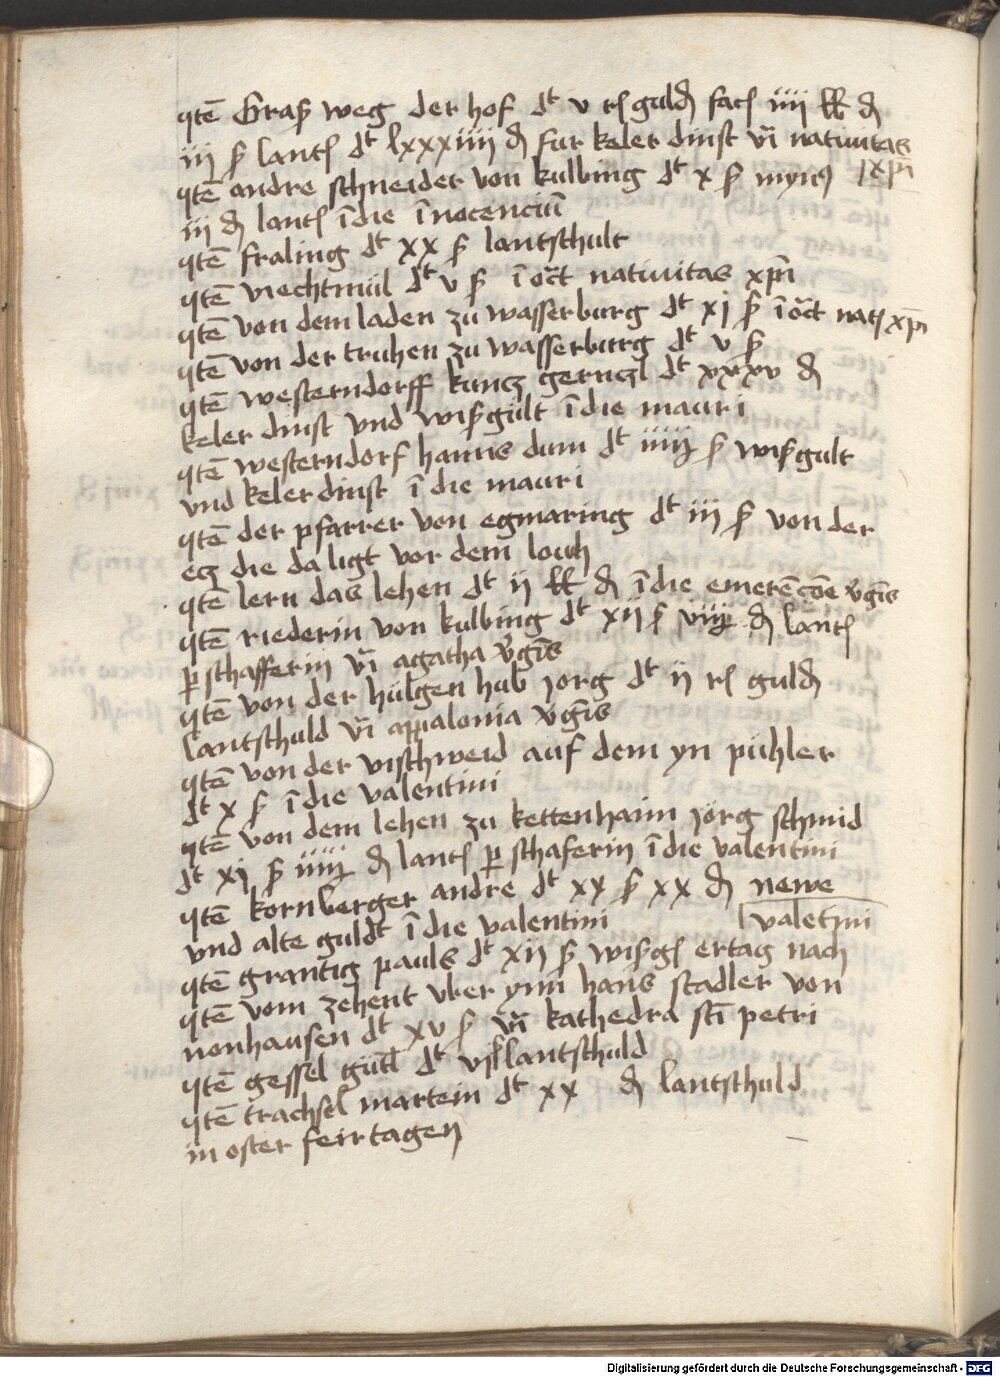 qtē Graß weg der hof dt v rß guldn facß iiij lb dn
iij ß lantß dt lxxxiiij dn fur keler dinst vī nativitas
xpī
qtē andre schneider von kulbing dt x ß myn9
iij dn lantß ī die īnocenciū
qtē fraling dt xx ß lantschult
qtē viechtmül dt v ß ī oct nativitas xpī
qtē von dem laden zu wasserburg dt xj ß ī oct natß xpī
qtē von der truhen zu wasserburg dt v ß
qtē westerndorff kuncz dt xxxv dn
keler dinst vnd wißgült ī die mauri
qtē westerndorf hanns dum dt ß wißgult
vnd keler dinst ī die mauri
qtē der pfarrer von egmaring dt iij ß von der
ecz die da ligt vor dem
qtē lern das lehen dt ij lb dn ī die v̄gīs
qtē riederin von kulbing dt xij ß dn lantß
p schafferin vī agatha v̄gīs
qtē von der hülgen hub jorg dt ij rß guldn
lantschuld vī appalonia v̄gīs
qtē von der vischweid auf dem yn pühler
dt x ß ī die valentini
qtē von dem lehen zu kettenhaim jorg schmid
dt xj ß dn lantß p schaferin ī die valentini
qtē kornberger andre dt xx ß xx dn newe
vnd alte guldt ī die valentini
valētini
qtē grantig pauls dt xij ß wißgß ertag nach
qtē vom zehent vber ynn hans stadler von
nonhausen dt xv ß vī kathedra scī petri
qtē gessel gütl dt vj ß lantschuld
qtē trachsel martein dt xx dn lantschuld
in oster feirtagen
Digitalisierung gefördert durch die Deutsche Forschungsgemeinschaft - DFG